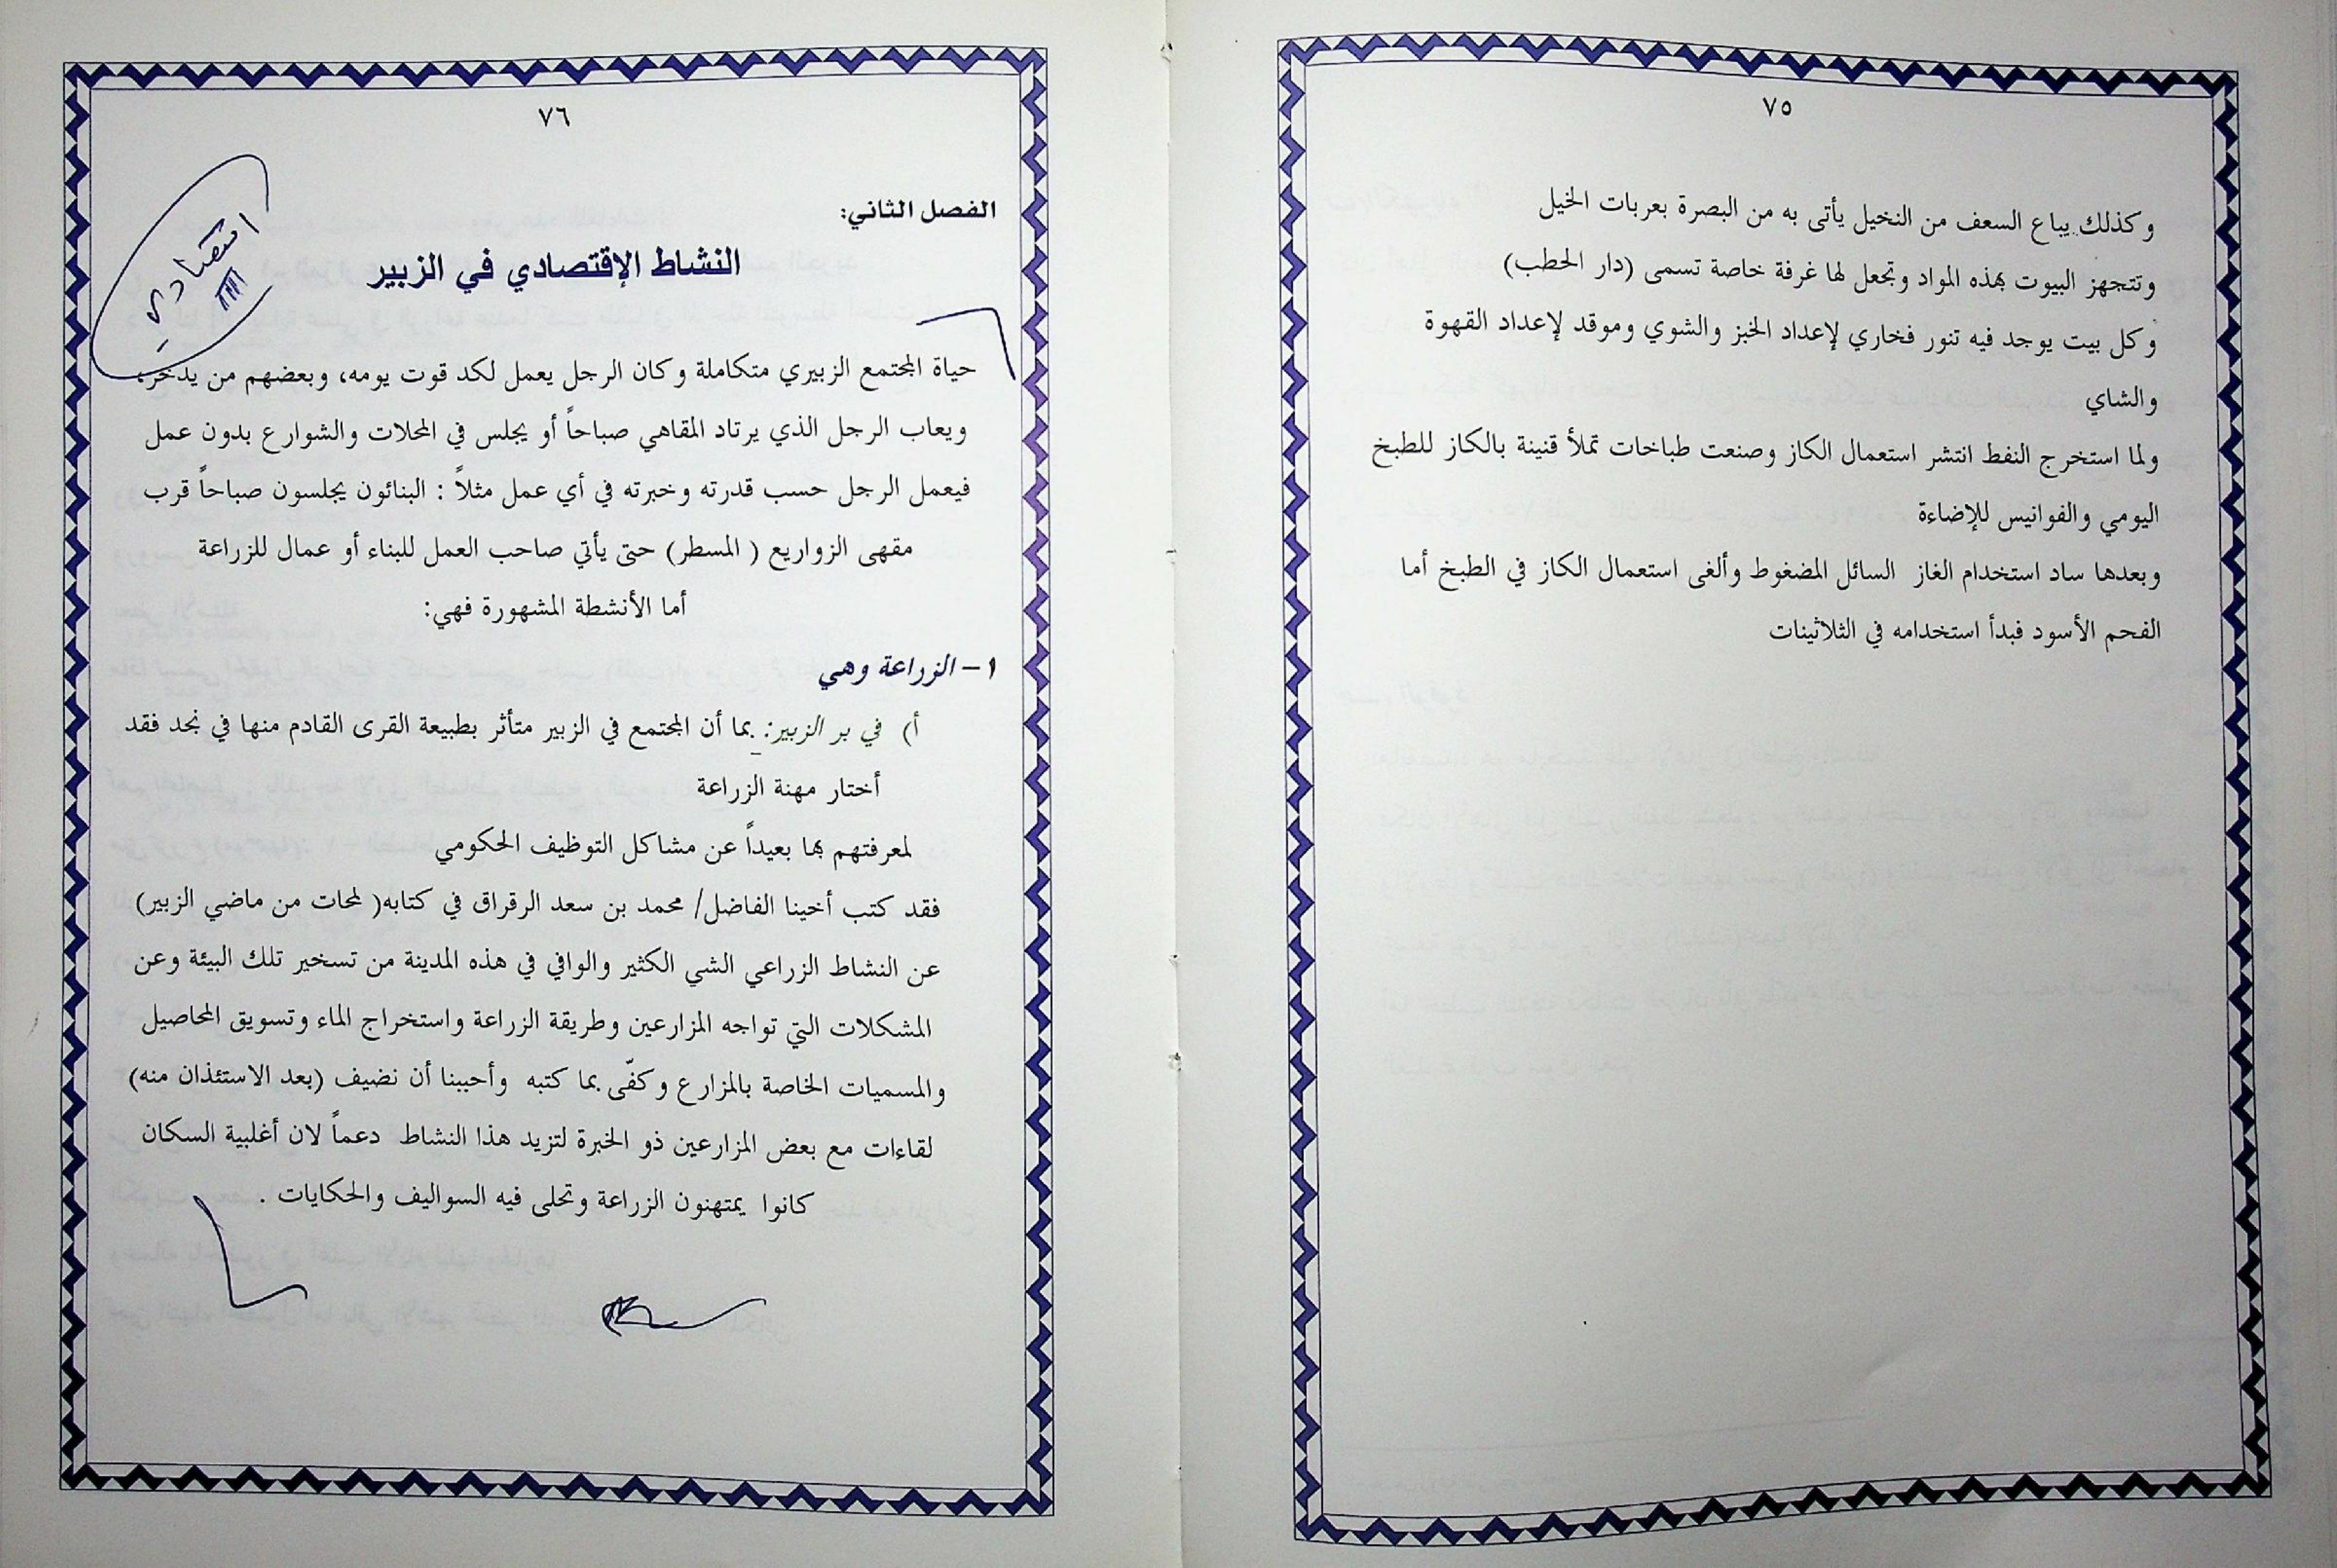 ٧٥
وكذلك يباع السعف من النخيل يأتى به من البصرة بعربات الخيل
وتتجهز البيوت بهذه المواد وتجعل لها غرفة خاصة تسمى (دار الحطب)
وكل بيت يوجد فيه تنور فخاري لإعداد الخبز والشوي وموقد لإعداد القهوة
والشاي
ولما استخرج النفط انتشر استعمال الكاز وصنعت طباخات تملأ قنينة بالكاز للطبخ
اليومي والفوانيس للإضاءة
وبعدها ساد استخدام الغاز السائل المضغوط وألغى استعمال الكاز في الطبخ أما
الفحم الأسود فبدأ استخدامه في الثلاثينات
٧٦
اقتصادي
الفصل الثاني:
النشاط الإقتصادي في الزبير
حياة المجتمع الزبيري متكاملة وكان الرجل يعمل لكد قوت يومه، وبعضهم من يدخر،
ويعاب الرجل الذي يرتاد المقاهي صباحاً أو يجلس في المحلات والشوارع بدون عمل
فيعمل الرجل حسب قدرته وخبرته في أي عمل مثلاً : البنائون يجلسون صباحاً قرب
مقهى الزواريع ( المسطر) حتى يأتي صاحب العمل للبناء أو عمال للزراعة
أما الأنشطة المشهورة فهي:
١ – الزراعة وهي
أ) في بر الزبير: بما أن المجتمع في الزبير متأثر بطبيعة القرى القادم منها في نجد فقد
أختار مهنة الزراعة
لمعرفتهم بها بعيداً عن مشاكل التوظيف الحكومي
فقد كتب أخينا الفاضل/ محمد بن سعد الرقراق في كتابه( لمحات من ماضي الزبير)
عن النشاط الزراعي الشي الكثير والوافي في هذه المدينة من تسخير تلك البيئة وعن
المشكلات التي تواجه المزارعين وطريقة الزراعة واستخراج الماء وتسويق المحاصيل
والمسميات الخاصة بالمزارع وكفّى بما كتبه وأحببنا أن نضيف (بعد الاستئذان منه)
لقاءات مع بعض المزارعين ذو الخبرة لتزيد هذا النشاط دعماً لان أغلبية السكان
كانوا يمتهنون الزراعة وتحلى فيه السواليف والحكايات .